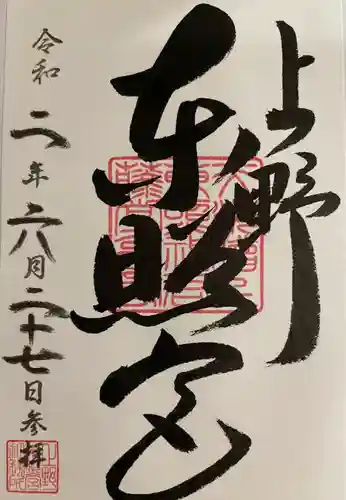 上野
東照宮
令和二年六月二十七日参拝